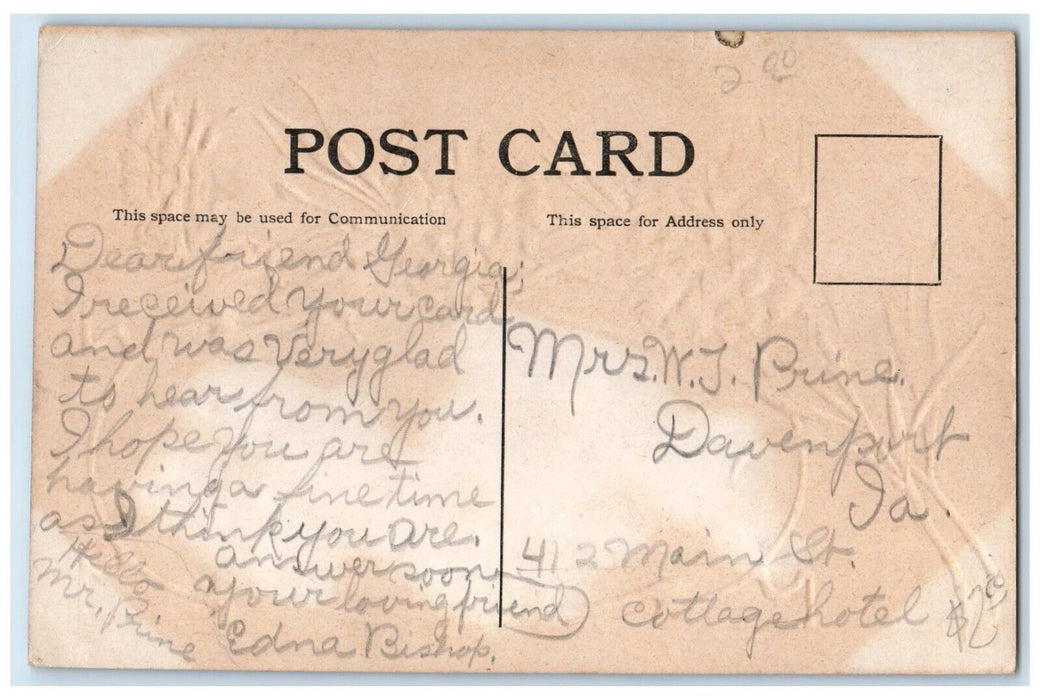 2 00
POST CARD
This space may be used for Communication
This space for Address only
Dear friend Georgia;
I received your card
and was very glad
to hear from you.
I hope you are
having a fine time
as I think you are.
answer soon
your loving friend
Edna Bishop.
Hello
Mr. Prine
Mrs. W. T. Prine.
Davenport
Ia.
412 Main St.
Cottage hotel